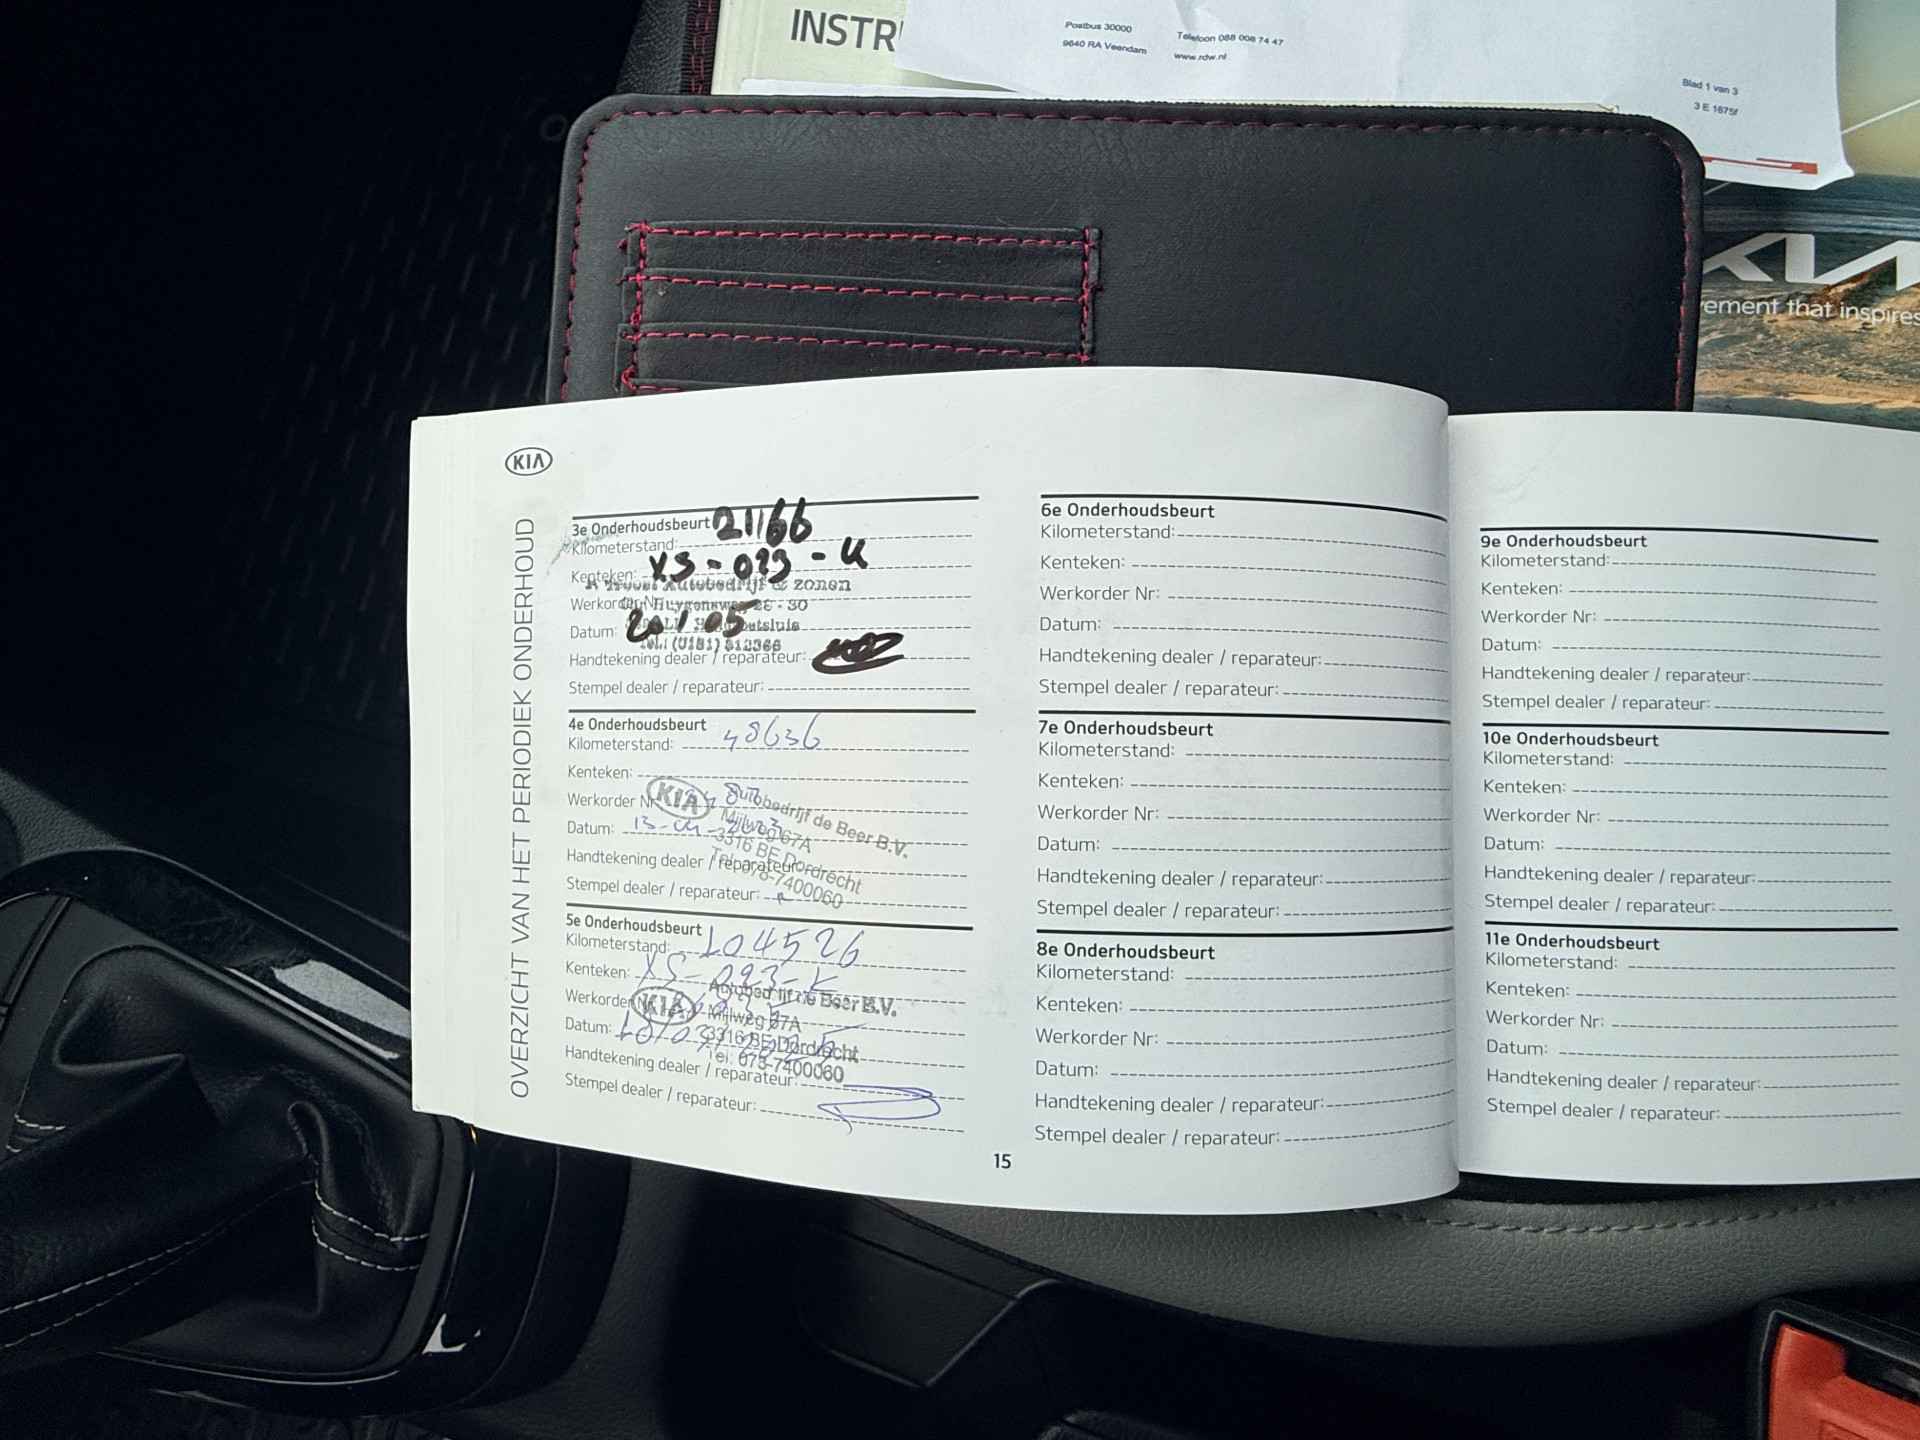 INSTR
Postbus 30000
9640 RA Veendam
Telefoon 088 008 74 47
www.rdw.nl
Blad 1 van 3
3 E 1675f
KIA
ement that inspires
KIA
OVERZICHT VAN HET PERIODIEK ONDERHOUD
3e Onderhoudsbeurt 21166
Kilometerstand:
Kenteken: XS-093-K
Autobedrijf & zonen
Werkorder Nr: Huygensweg 28 - 30
Datum: 20/05
Tel: (0181) 312366
Handtekening dealer / reparateur:
Stempel dealer / reparateur:
4e Onderhoudsbeurt
Kilometerstand: 48636
Kenteken:
Werkorder Nr:
KIA Autobedrijf de Beer B.V.
Mijlweg 67A
Datum: 13-04-2023
3316 BE Dordrecht
Handtekening dealer / reparateur:
Tel: 078-7400060
Stempel dealer / reparateur:
5e Onderhoudsbeurt
Kilometerstand: 104526
Kenteken: XS-093-K
Werkorder Nr:
KIA Autobedrijf de Beer B.V.
Mijlweg 67A
Datum:
3316 BE Dordrecht
Tel: 078-7400060
Handtekening dealer / reparateur:
Stempel dealer / reparateur:
15
6e Onderhoudsbeurt
Kilometerstand:
Kenteken:
Werkorder Nr:
Datum:
Handtekening dealer / reparateur:
Stempel dealer / reparateur:
7e Onderhoudsbeurt
Kilometerstand:
Kenteken:
Werkorder Nr:
Datum:
Handtekening dealer / reparateur:
Stempel dealer / reparateur:
8e Onderhoudsbeurt
Kilometerstand:
Kenteken:
Werkorder Nr:
Datum:
Handtekening dealer / reparateur:
Stempel dealer / reparateur:
9e Onderhoudsbeurt
Kilometerstand:
Kenteken:
Werkorder Nr:
Datum:
Handtekening dealer / reparateur:
Stempel dealer / reparateur:
10e Onderhoudsbeurt
Kilometerstand:
Kenteken:
Werkorder Nr:
Datum:
Handtekening dealer / reparateur:
Stempel dealer / reparateur:
11e Onderhoudsbeurt
Kilometerstand:
Kenteken:
Werkorder Nr:
Datum:
Handtekening dealer / reparateur:
Stempel dealer / reparateur: